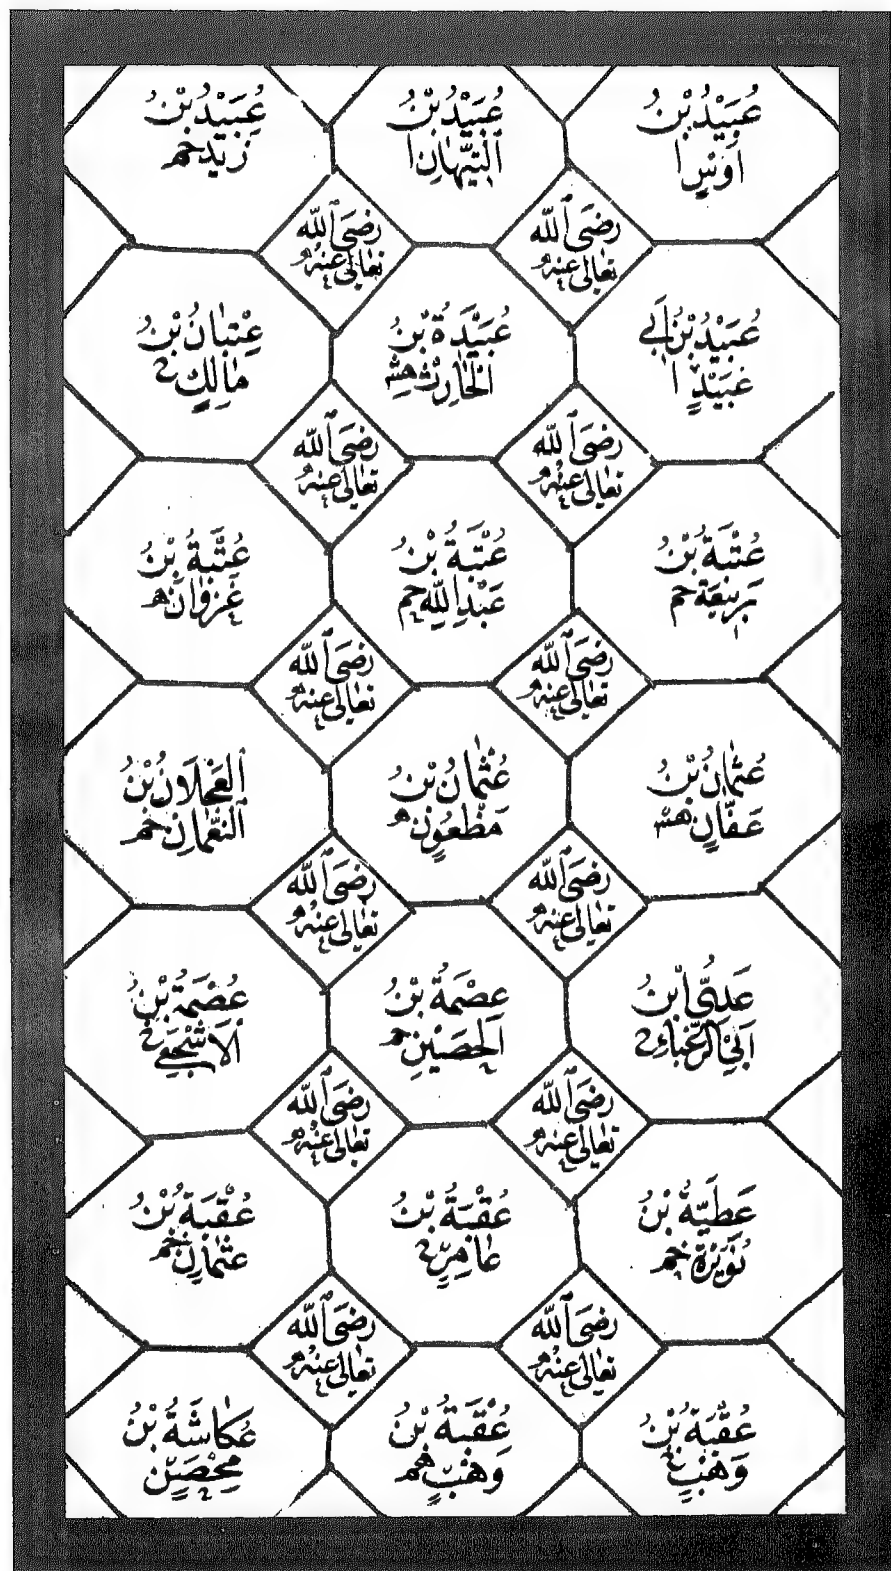 عُبَيْدُ بْنُ
اَوْسٍ ا
عُبَيْدُ بْنُ
التَّيِّهَانِ ا
عُبَيْدُ بْنُ
زَيْدٍ خم
رَضِيَ اللّٰه
تَعَالٰى عَنْهُ
رَضِيَ اللّٰه
تَعَالٰى عَنْهُ
عُبَيْدُ بْنُ اَبِي
عُبَيْدٍ ا
عُبَيْدَةُ بْنُ
الْحَارِثِ هش
عِتْبَانُ بْنُ
مَالِكٍ
رَضِيَ اللّٰه
تَعَالٰى عَنْهُ
رَضِيَ اللّٰه
تَعَالٰى عَنْهُ
عُتْبَةُ بْنُ
رَبِيْعَةَ حم
عُتْبَةُ بْنُ
عَبْدِ اللّٰهِ حم
عُتْبَةُ بْنُ
غَزْوَانَ ھ
رَضِيَ اللّٰه
تَعَالٰى عَنْهُ
رَضِيَ اللّٰه
تَعَالٰى عَنْهُ
عُثْمَانُ بْنُ
عَفَّانَ هش
عُثْمَانُ بْنُ
مَظْعُوْنٍ ھ
الْعَجْلَانُ بْنُ
النُّعْمَانِ خم
رَضِيَ اللّٰه
تَعَالٰى عَنْهُ
رَضِيَ اللّٰه
تَعَالٰى عَنْهُ
عَدِيُّ ابْنُ
اَبِي الزَّغْبَاءِ
عِصْمَةُ بْنُ
الْحُصَيْنِ خم
عُصْمَةُ بْنُ
الْاَشْجَعِيِّ
رَضِيَ اللّٰه
تَعَالٰى عَنْهُ
رَضِيَ اللّٰه
تَعَالٰى عَنْهُ
عَطِيَّةُ بْنُ
نُوَيْرَةَ خم
عُقْبَةُ بْنُ
عَامِرٍ
عُقْبَةُ بْنُ
عُثْمَانَ خم
رَضِيَ اللّٰه
تَعَالٰى عَنْهُ
رَضِيَ اللّٰه
تَعَالٰى عَنْهُ
عُقْبَةُ بْنُ
وَهْبٍ
عُقْبَةُ بْنُ
وَهْبٍ هم
عُكَاشَةُ بْنُ
مِحْصَنٍ